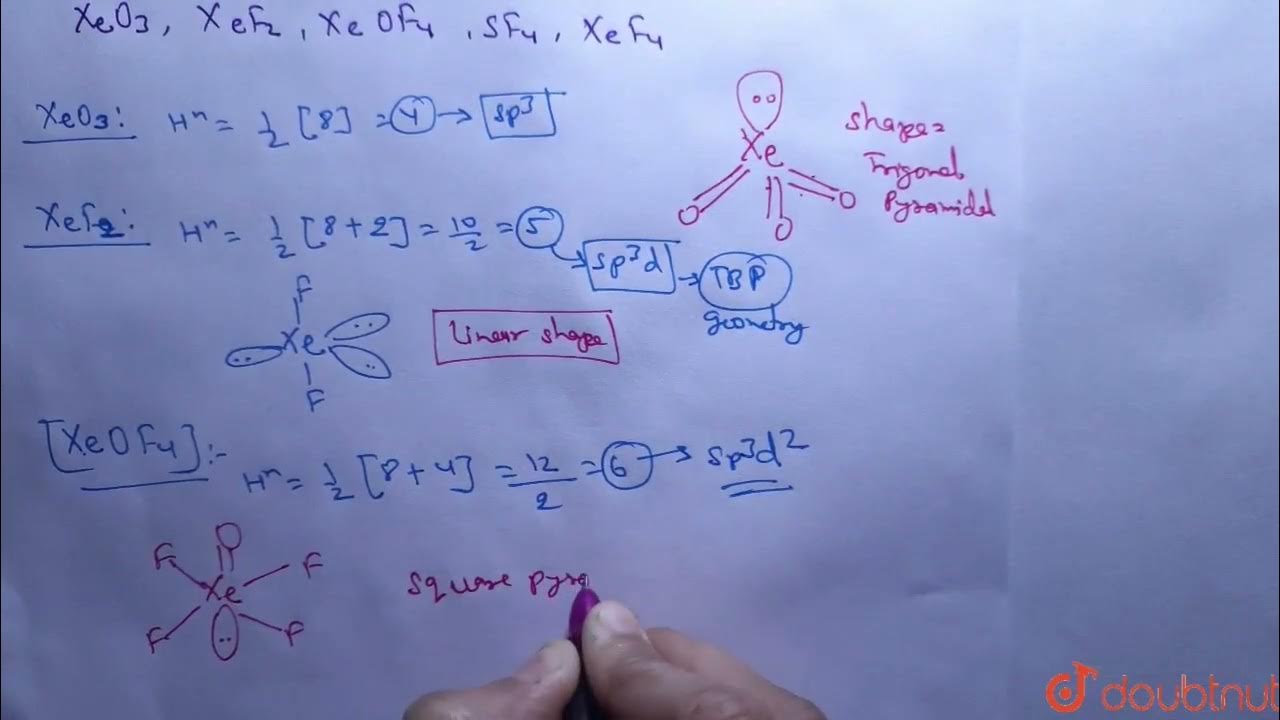 XeO3, XeF2, XeOF4, SF4, XeF4
XeO3: Hⁿ = 1/2 [8] = 4 → sp³
Xe
O
O
O
shape =
Trigonal
Pyramidal
XeF2: Hⁿ = 1/2 [8+2] = 10/2 = 5
sp³d → TBP
geometry
F
Xe
F
Linear shape
[XeOF4]:- Hⁿ = 1/2 [8+4] = 12/2 = 6 → sp³d²
O
F F
Xe
F F
Square pyra
doubtnut